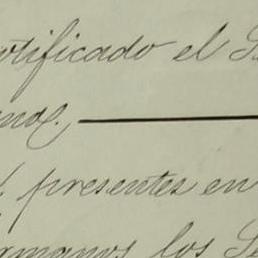 tificado el S
nal.
presentes en
rmanos los Se